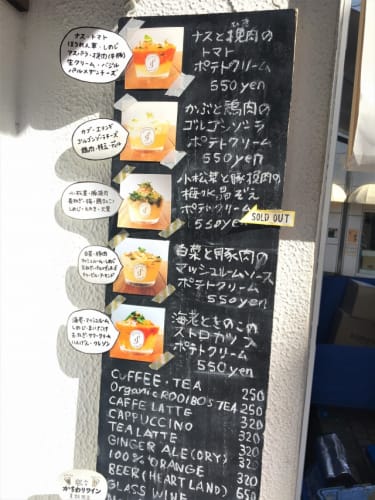 ナスと挽肉の
ひき
トマト
ポテトクリーム
550yen
かぶと鶏肉の
ゴルゴンゾーラ
ポテトクリーム
550yen
小松菜と豚挽肉の
梅水晶ぞえ
ポテトクリーム
550yen
SOLD OUT
白菜と豚肉の
マッシュルームソース
ポテトクリーム
550yen
海老ときのこの
ストロガノフ
ポテトクリーム
550yen
COFFEE・TEA 250
Organic ROOIBO'S TEA 250
CAFFE LATTE 320
CAPPUCCINO 320
TEA LATTE 320
GINGER ALE(DRY) 320
100% ORANGE 320
BEER(HEARTLAND) 550
GLASS WINE 550
ナス・トマト
ほうれん草・しめじ
生クリーム・バジル
パルメザンチーズ
ゴルゴンゾーラチーズ
小松菜・豚挽肉
白菜・豚肉
海老・マッシュルーム